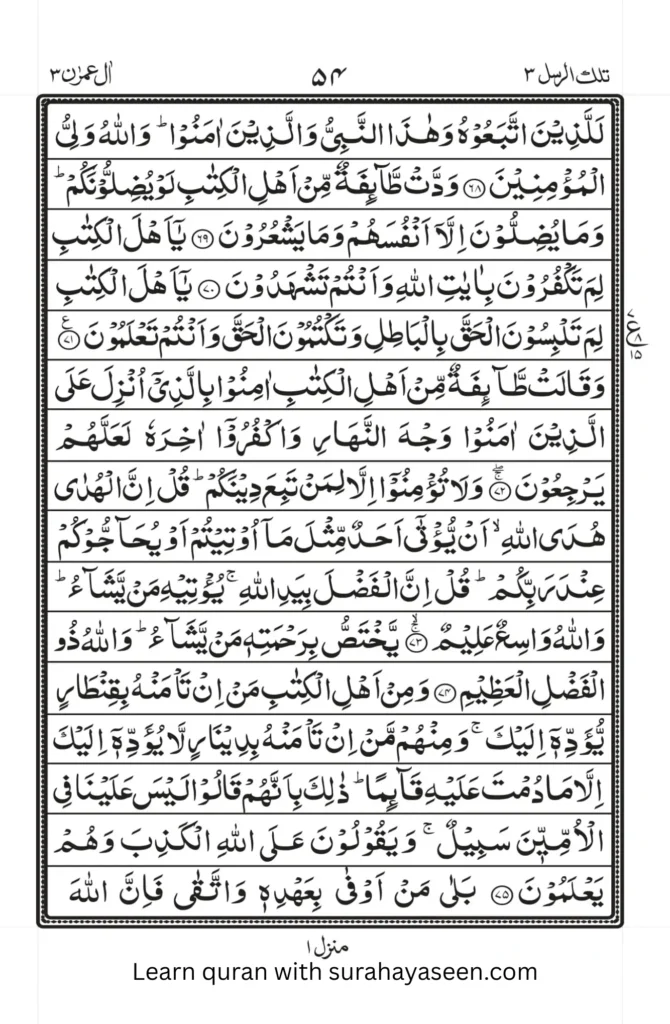 تلك الرسل ٣
۵۴
اٰل عمرٰن ٣
لَلَّذِيۡنَ اتَّبَعُوۡهُ وَهٰذَا النَّبِىُّ وَالَّذِيۡنَ اٰمَنُوۡا ؕ وَاللّٰهُ وَلِىُّ
الۡمُؤۡمِنِيۡنَ ﴿۶۸﴾ وَدَّتۡ طَّآٮِٕفَةٌ مِّنۡ اَهۡلِ الۡكِتٰبِ لَوۡ يُضِلُّوۡنَكُمۡ ؕ
وَمَا يُضِلُّوۡنَ اِلَّاۤ اَنۡفُسَهُمۡ وَمَا يَشۡعُرُوۡنَ ﴿۶۹﴾ يٰۤاَهۡلَ الۡكِتٰبِ
لِمَ تَكۡفُرُوۡنَ بِاٰيٰتِ اللّٰهِ وَاَنۡتُمۡ تَشۡهَدُوۡنَ ﴿۷۰﴾ يٰۤاَهۡلَ الۡكِتٰبِ
لِمَ تَلۡبِسُوۡنَ الۡحَقَّ بِالۡبَاطِلِ وَتَكۡتُمُوۡنَ الۡحَقَّ وَاَنۡتُمۡ تَعۡلَمُوۡنَ ﴿۷۱﴾ ع
۷
ع
۸
۱۵
وَقَالَتۡ طَّآٮِٕفَةٌ مِّنۡ اَهۡلِ الۡكِتٰبِ اٰمِنُوۡا بِالَّذِىۡۤ اُنۡزِلَ عَلَى
الَّذِيۡنَ اٰمَنُوۡا وَجۡهَ النَّهَارِ وَاكۡفُرُوۡۤا اٰخِرَهٗ لَعَلَّهُمۡ
يَرۡجِعُوۡنَ ﴿۷۲﴾ وَلَا تُؤۡمِنُوۡۤا اِلَّا لِمَنۡ تَبِعَ دِيۡنَكُمۡ ؕ قُلۡ اِنَّ الۡهُدٰى
هُدَى اللّٰهِ ۙ اَنۡ يُّؤۡتٰٓى اَحَدٌ مِّثۡلَ مَاۤ اُوۡتِيۡتُمۡ اَوۡ يُحَآجُّوۡكُمۡ
عِنۡدَ رَبِّكُمۡ ؕ قُلۡ اِنَّ الۡفَضۡلَ بِيَدِ اللّٰهِ ۚ يُؤۡتِيۡهِ مَنۡ يَّشَآءُ ؕ
وَاللّٰهُ وَاسِعٌ عَلِيۡمٌ ﴿۷۳﴾ ۚۙ يَّخۡتَصُّ بِرَحۡمَتِهٖ مَنۡ يَّشَآءُ ؕ وَاللّٰهُ ذُو
الۡفَضۡلِ الۡعَظِيۡمِ ﴿۷۴﴾ وَمِنۡ اَهۡلِ الۡكِتٰبِ مَنۡ اِنۡ تَاۡمَنۡهُ بِقِنۡطَارٍ
يُّؤَدِّهٖۤ اِلَيۡكَ ۚ وَمِنۡهُمۡ مَّنۡ اِنۡ تَاۡمَنۡهُ بِدِيۡنَارٍ لَّا يُؤَدِّهٖۤ اِلَيۡكَ
اِلَّا مَا دُمۡتَ عَلَيۡهِ قَآٮِٕمًا ؕ ذٰلِكَ بِاَنَّهُمۡ قَالُوۡا لَيۡسَ عَلَيۡنَا فِى
الۡاُمِّيّٖنَ سَبِيۡلٌ ۚ وَيَقُوۡلُوۡنَ عَلَى اللّٰهِ الۡكَذِبَ وَهُمۡ
يَعۡلَمُوۡنَ ﴿۷۵﴾ بَلٰى مَنۡ اَوۡفٰى بِعَهۡدِهٖ وَاتَّقٰى فَاِنَّ اللّٰهَ
منزل ١
Learn quran with surahayaseen.com